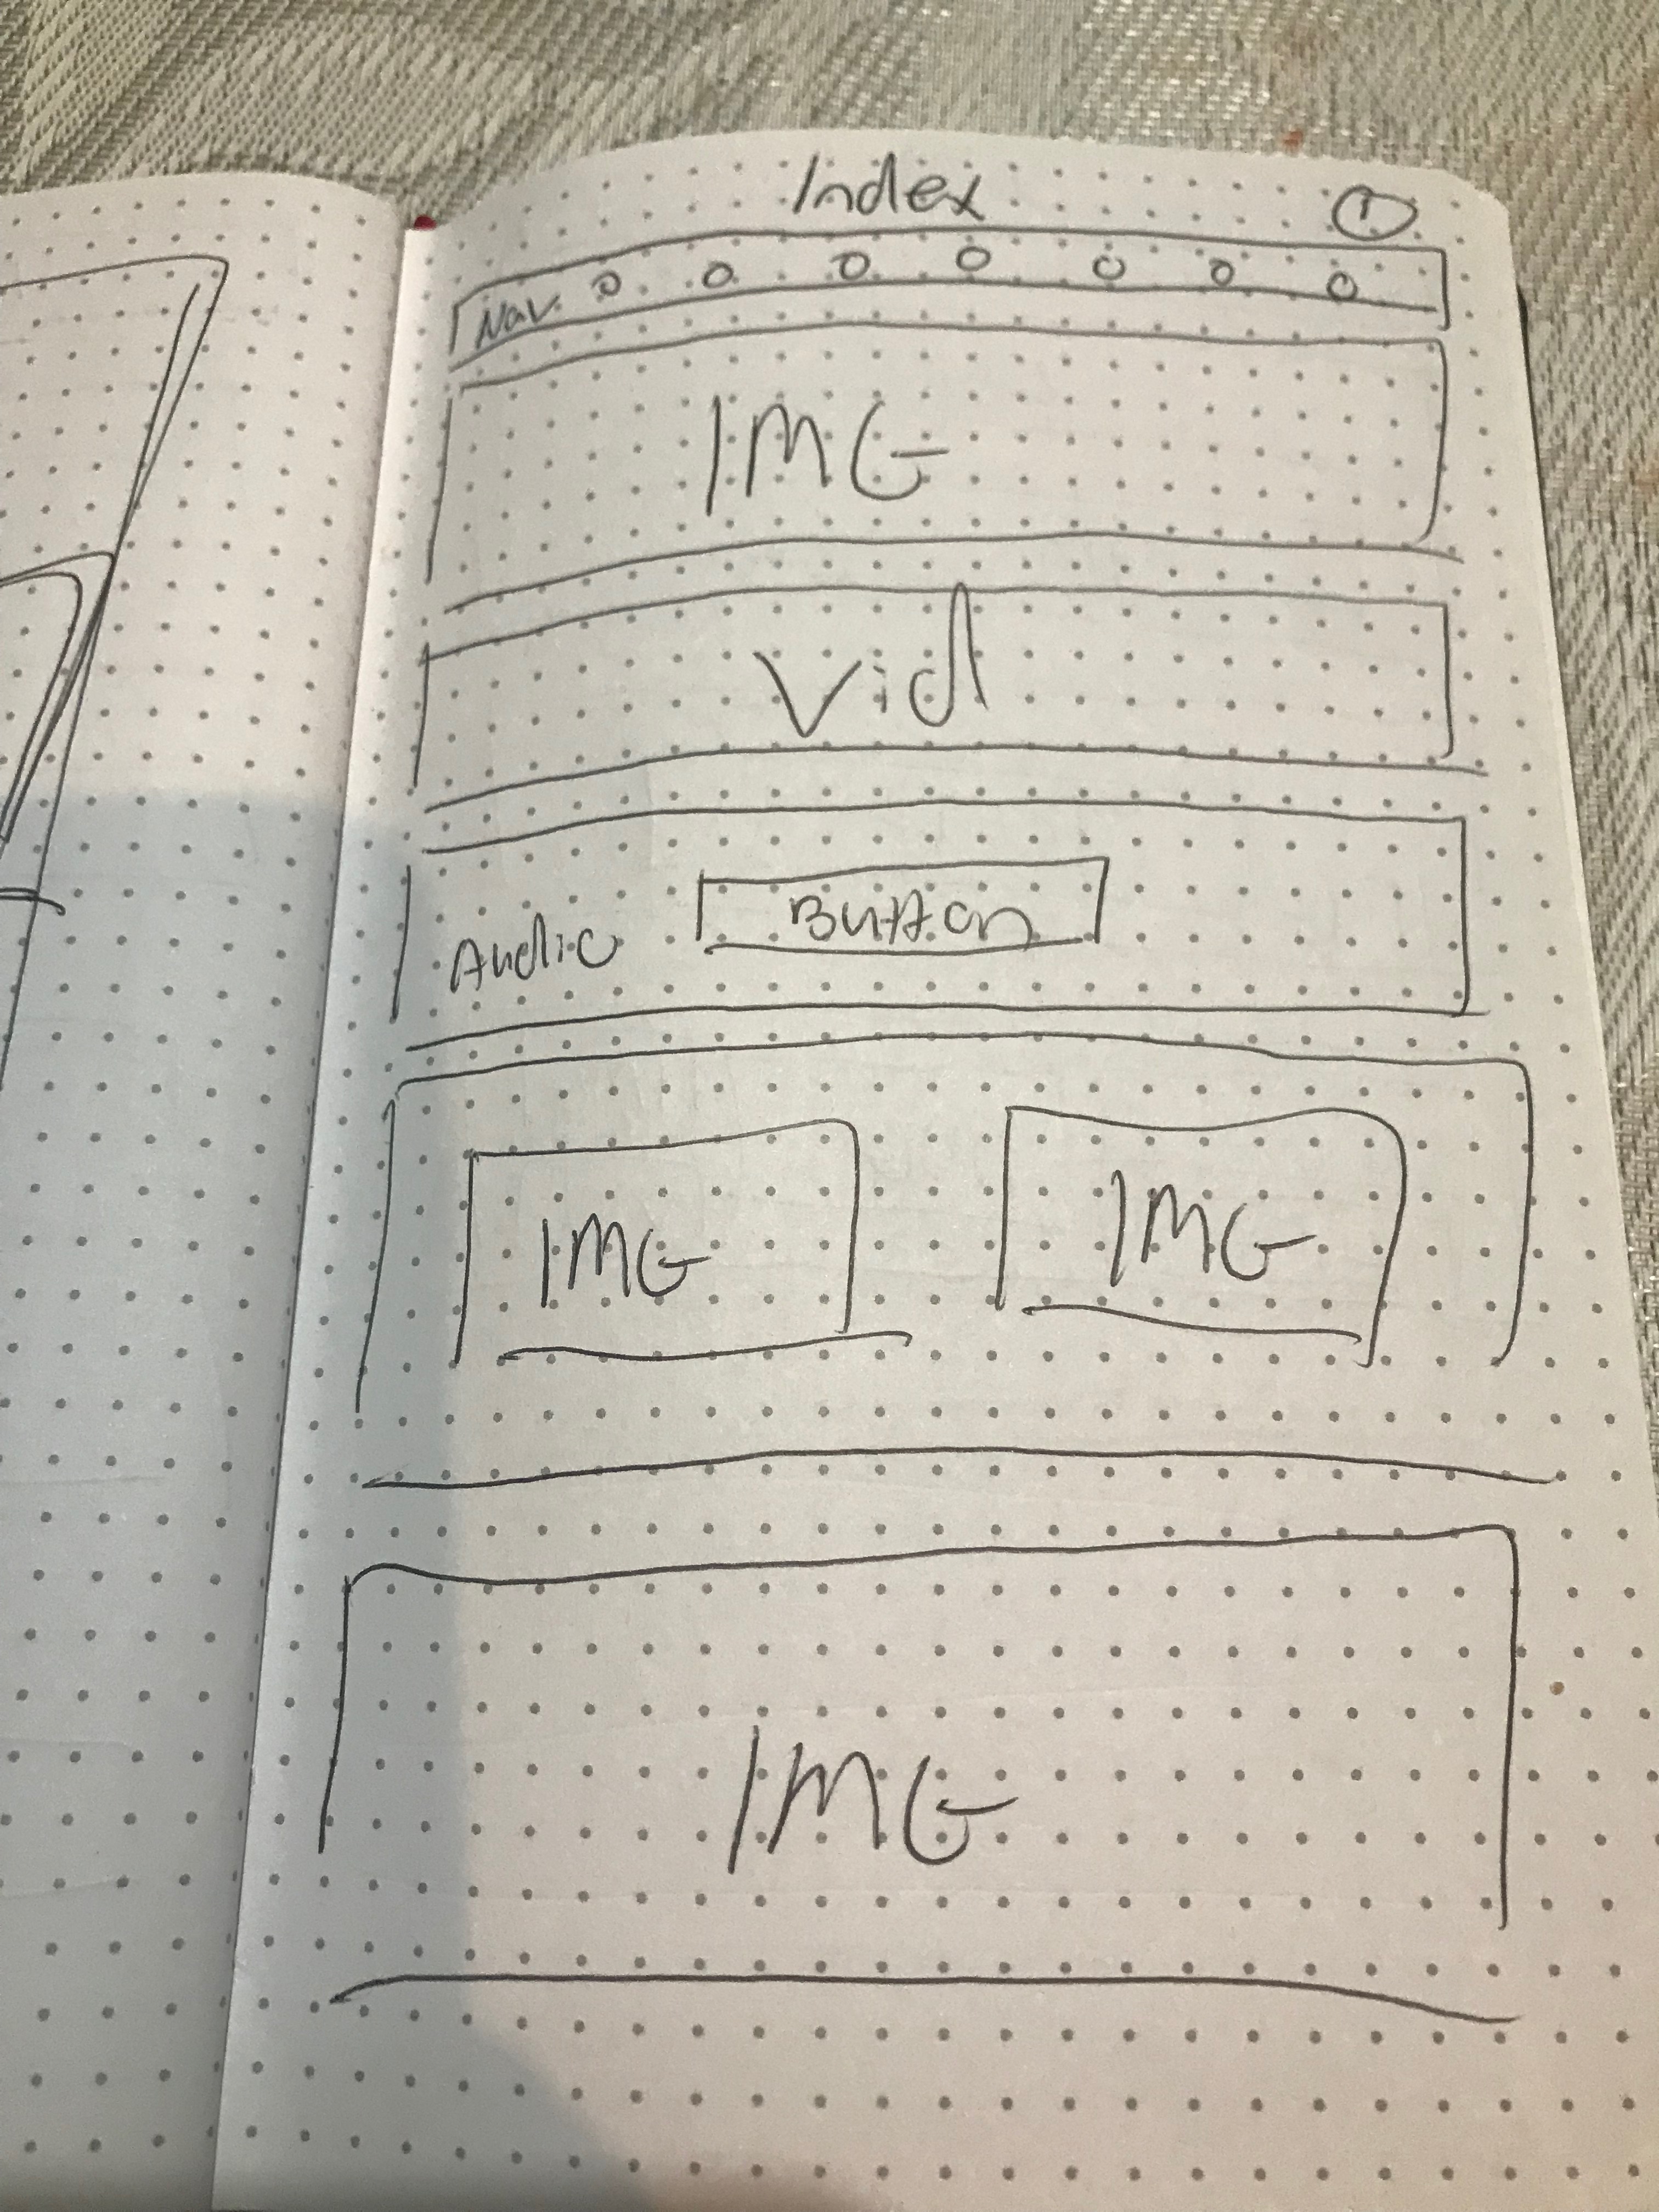 Index 1
Nav.
IMG
Vid
Audio Button
IMG IMG
IMG